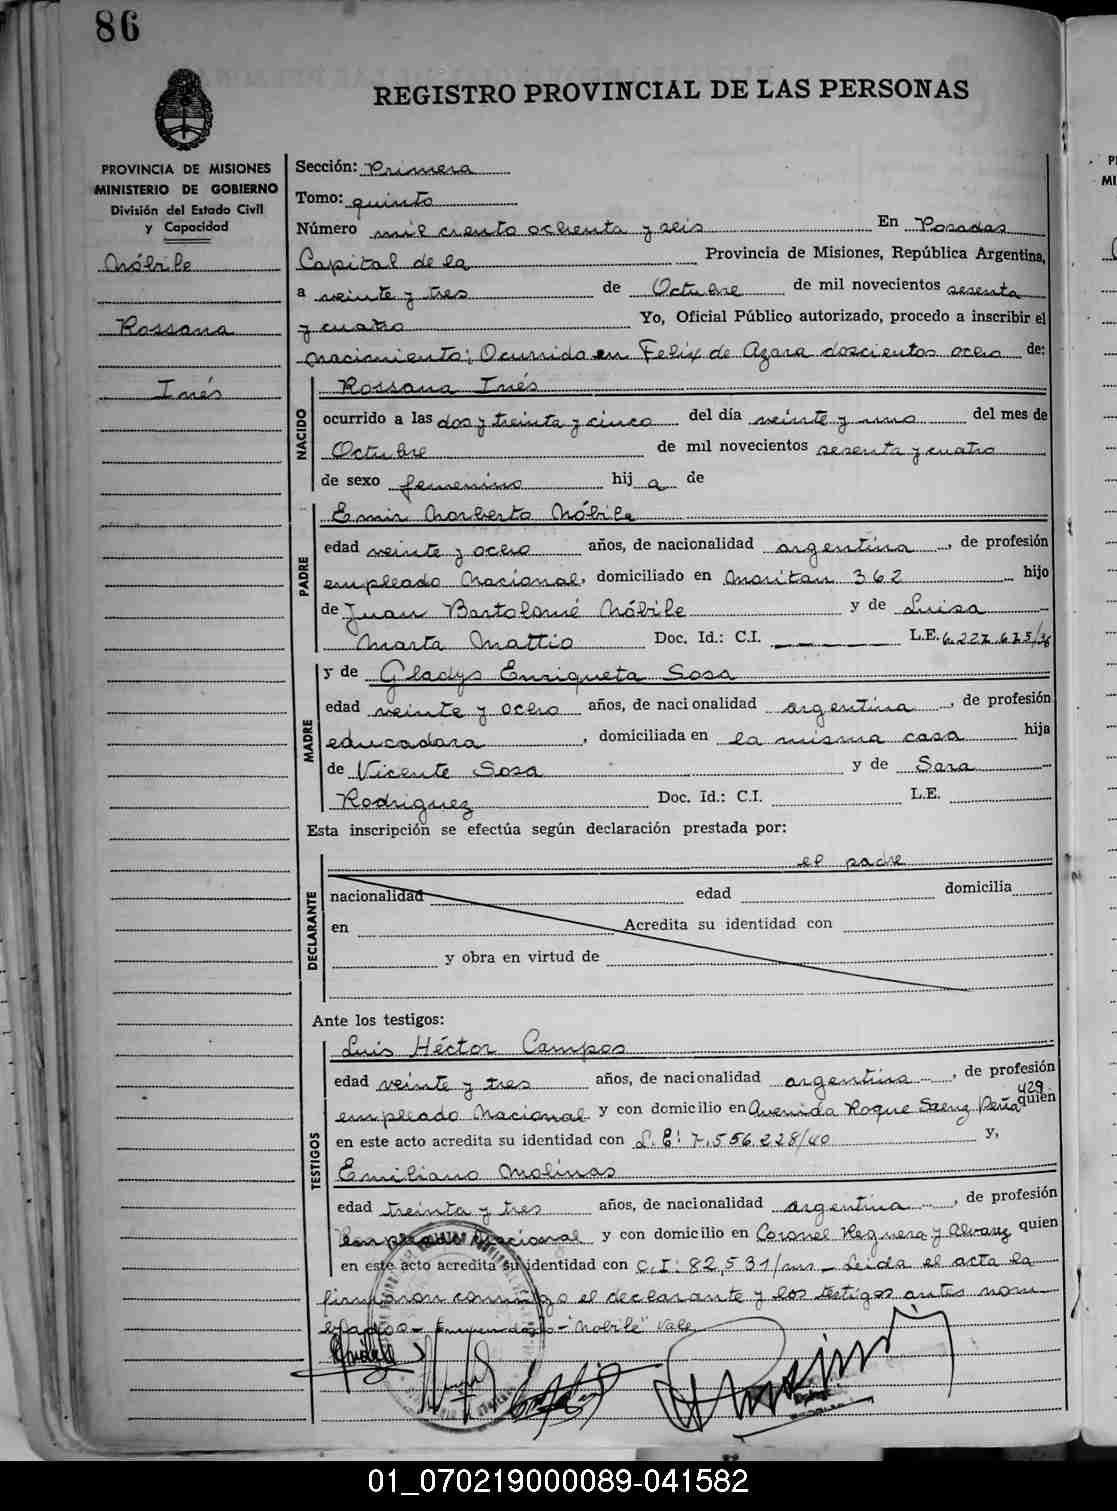 86
REGISTRO PROVINCIAL DE LAS PERSONAS
PROVINCIA DE MISIONES
MINISTERIO DE GOBIERNO
División del Estado Civil
y Capacidad
Móbile
Rossana
Inés
Sección: Primera
Tomo: quinto
Número mil ciento ochenta y seis En Posadas
Capital de la Provincia de Misiones, República Argentina,
a veinte y tres de Octubre de mil novecientos sesenta
y cuatro Yo, Oficial Público autorizado, procedo a inscribir el
nacimiento; Ocurrido en Felix de Azara doscientos ocho de:
NACIDO
Rossana Inés
ocurrido a las dos y treinta y cinco del día veinte y uno del mes de
Octubre de mil novecientos sesenta y cuatro
de sexo femenino hij a de
PADRE
Emir Norberto Móbile
edad veinte y ocho años, de nacionalidad argentina, de profesión
empleado Nacional, domiciliado en 362 hijo
de Juan Bartolomé Móbile y de Luisa
Marta Mattio Doc. Id.: C.I. L.E. 6.227.675/36
MADRE
y de Gladys Enriqueta Sosa
edad veinte y ocho años, de nacionalidad argentina, de profesión
educadora, domiciliada en la misma casa hija
de Vicente Sosa y de Sara
Rodriguez Doc. Id.: C.I. L.E.
Esta inscripción se efectúa según declaración prestada por:
DECLARANTE
el padre
nacionalidad edad domicilia
en Acredita su identidad con
y obra en virtud de
Ante los testigos:
TESTIGOS
Luis Héctor Campos
edad veinte y tres años, de nacionalidad argentina, de profesión
empleado Nacional y con domicilio en Avenida Roque Saenz Peña 429 quien
en este acto acredita su identidad con L.E: 7.556.228/40 y,
Emiliano Molinas
edad treinta y tres años, de nacionalidad argentina, de profesión
Empleado Nacional y con domicilio en Coronel Reguera y Alvarez quien
en este acto acredita su identidad con C.I: 82,531/ms - Leida el acta la
firmaron conmigo el declarante y los testigos antes nom
brados - Enmendado - "Mobile" Vale
01_070219000089-041582